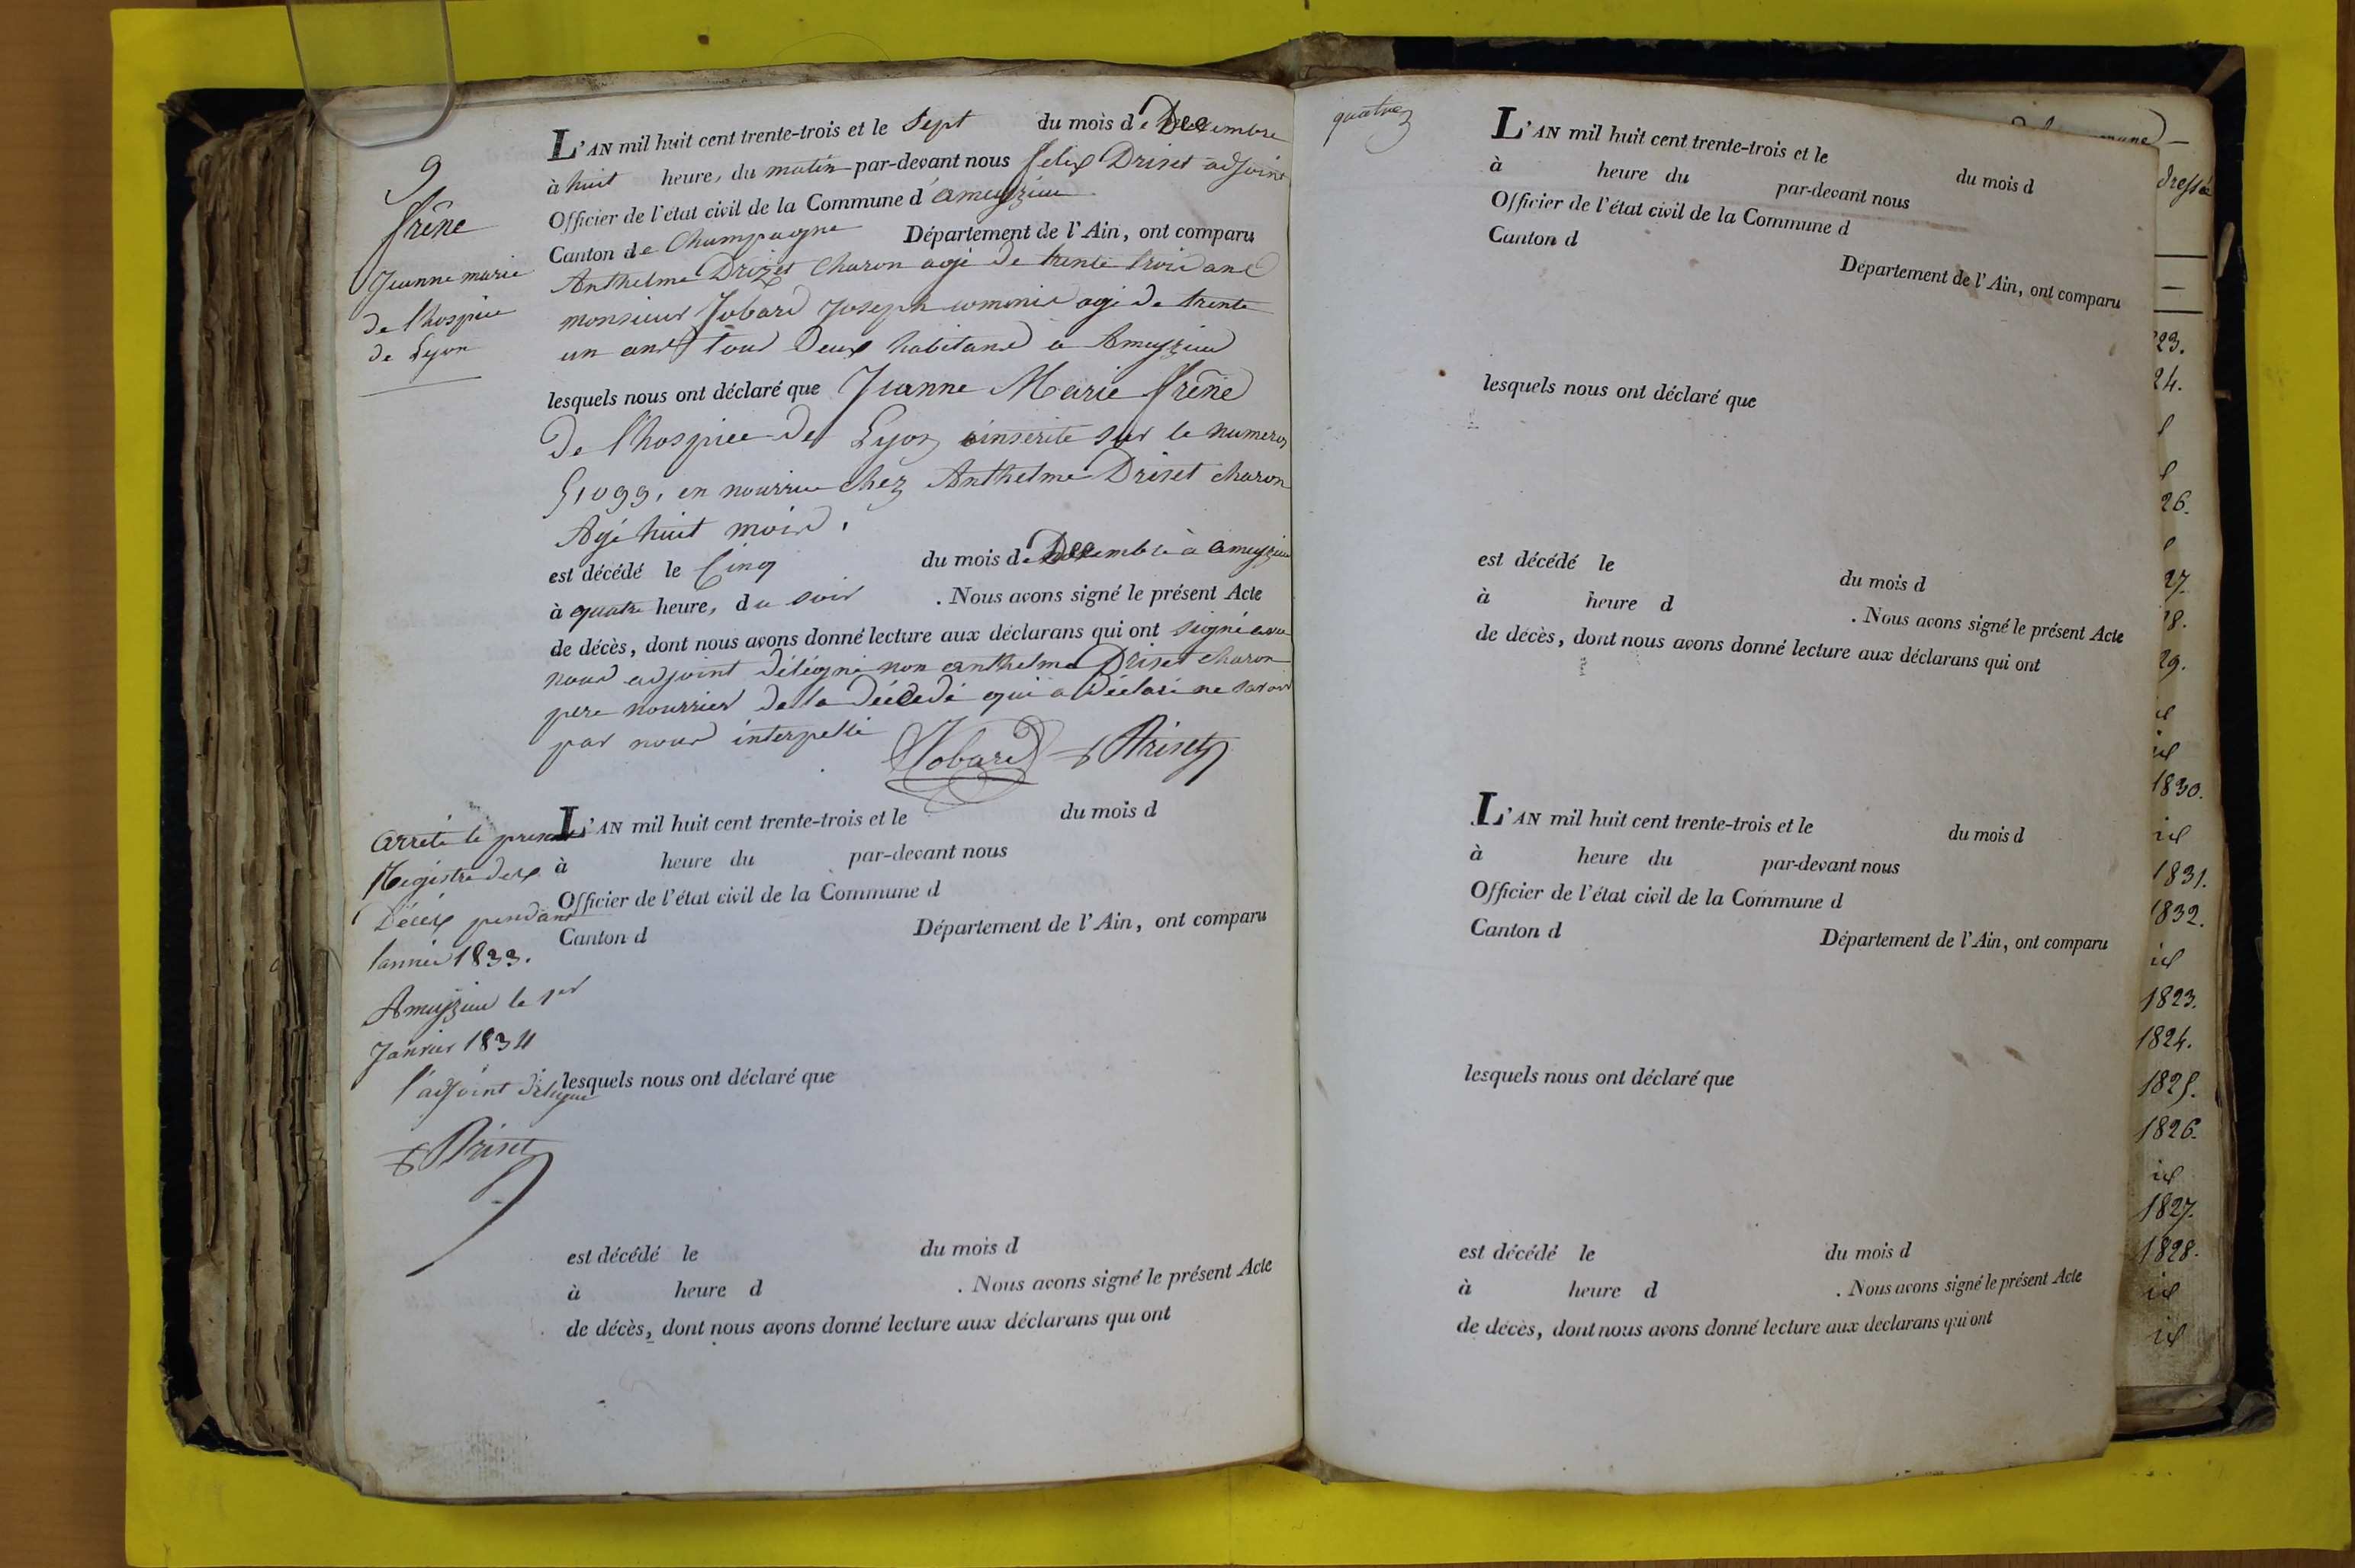 9
frêne
Jeanne marie
de l'hospice
de Lyon
L'AN mil huit cent trente-trois et le Sept du mois de Decembre
à huit heure, du matin par-devant nous felix Driset adjoint
Officier de l'état civil de la Commune d'ameyzieu
Canton de Champagne Département de l'Ain, ont comparu
Anthelme Drizet Charon agé de trente trois ans
monsieur Jobard Joseph commis agé de trente
un ans tous deux habitans a Ameyzieu
lesquels nous ont déclaré que Jeanne Marie frêne
De l'hospice de Lyon inscrite sur le numero
51099, en nourrice chez Anthelme Driset charon
Agé huit mois.
est décédé le Cinq du mois de Decembre à ameyzieu
à quatre heure, du soir . Nous avons signé le présent Acte
de décès, dont nous avons donné lecture aux déclarans qui ont signé avec
nous adjoint délégué non anthelme Driset charon
pere nourrier de la décedé qui a déclaré ne savoir
par nous interpellé
Jobard f Driset
arrêté le present
Registre des
Décés pendant
l'année 1833.
Ameyzieu le 1er
Janvier 1834
l'adjoint délégué
f Driset
L'AN mil huit cent trente-trois et le du mois d
à heure du par-devant nous
Officier de l'état civil de la Commune d
Canton d Département de l'Ain, ont comparu
lesquels nous ont déclaré que
est décédé le du mois d
à heure d . Nous avons signé le présent Acte
de décès, dont nous avons donné lecture aux déclarans qui ont
quatre
L'AN mil huit cent trente-trois et le du mois d
à heure du par-devant nous
Officier de l'état civil de la Commune d
Canton d Département de l'Ain, ont comparu
lesquels nous ont déclaré que
est décédé le du mois d
à heure d . Nous avons signé le présent Acte
de décès, dont nous avons donné lecture aux déclarans qui ont
L'AN mil huit cent trente-trois et le du mois d
à heure du par-devant nous
Officier de l'état civil de la Commune d
Canton d Département de l'Ain, ont comparu
lesquels nous ont déclaré que
est décédé le du mois d
à heure d . Nous avons signé le présent Acte
de décès, dont nous avons donné lecture aux déclarans qui ont
dressé
23.
24.
26.
27.
28.
29.
id
id
1830.
id
1831.
1832.
id
1823.
1824.
1825.
1826.
id
1827.
1828.
id
id